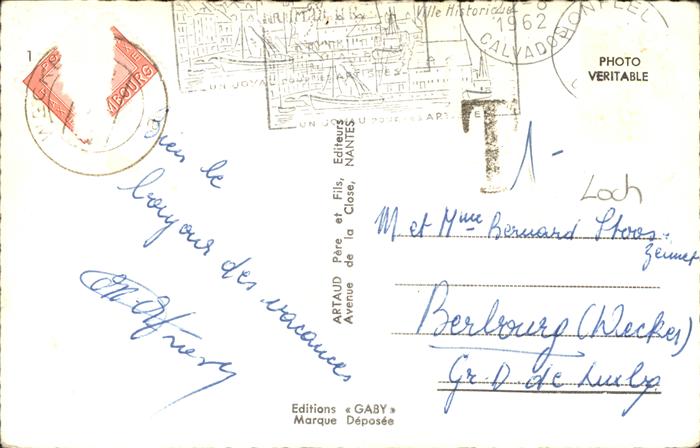 1
MBOURG
Ville Historique
UN JOYAU POUR LES ARTISTES
UN JOYAU POUR LES ARTISTES
1962
CALVADOS
HONFLEUR
PHOTO
VERITABLE
T
1-
Loch
Bien le
bonjour des vacances
ARTAUD Père et Fils, Editeurs
Avenue de la Close, NANTES
M et Mme Bernard Stoos-
Berbourg (Wecker)
Gr. D. de Luxbg
Editions « GABY »
Marque Déposée